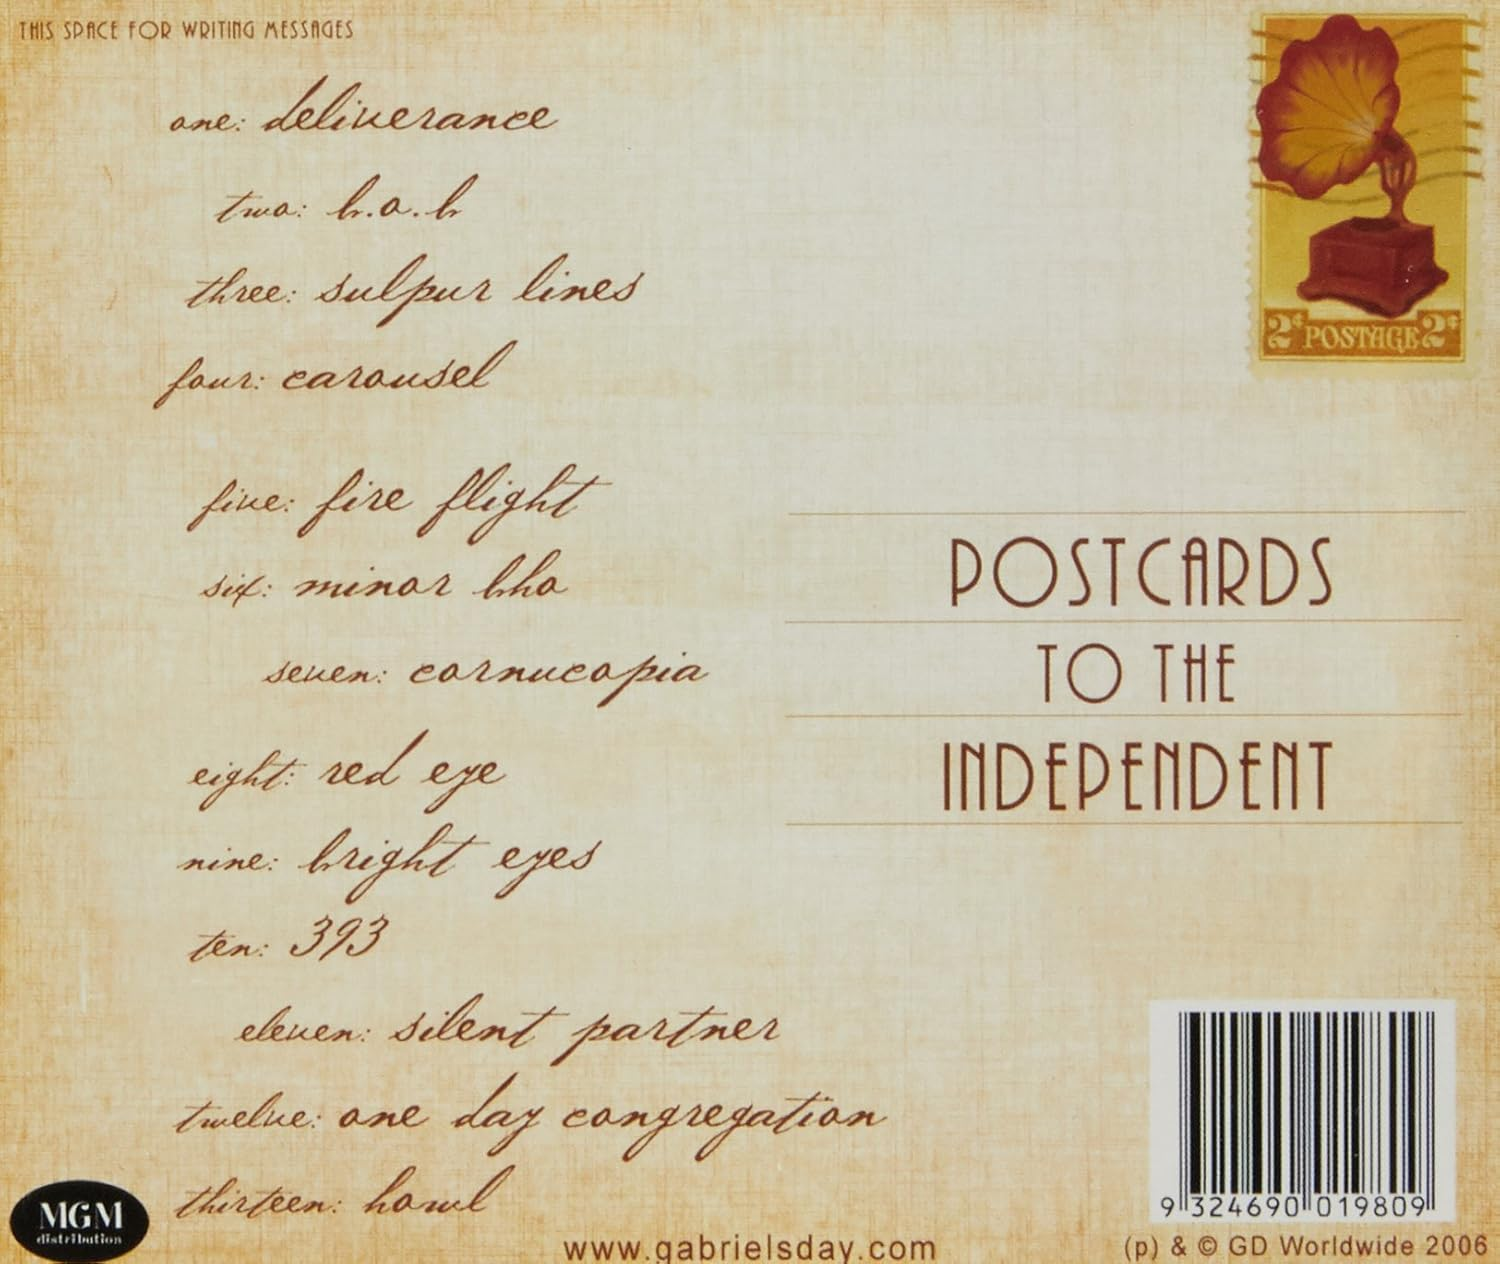 THIS SPACE FOR WRITING MESSAGES
one: deliverance
two: b.o.b
three: sulpur lines
four: carousel
five: fire flight
six: minor bho
seven: cornucopia
eight: red eye
nine: bright eyes
ten: 393
eleven: silent partner
twelve: one day congregation
thirteen: howl
2¢ POSTAGE 2¢
POSTCARDS
TO THE
INDEPENDENT
MGM
distribution
www.gabrielsday.com
9 324690 019809
(p) & © GD Worldwide 2006